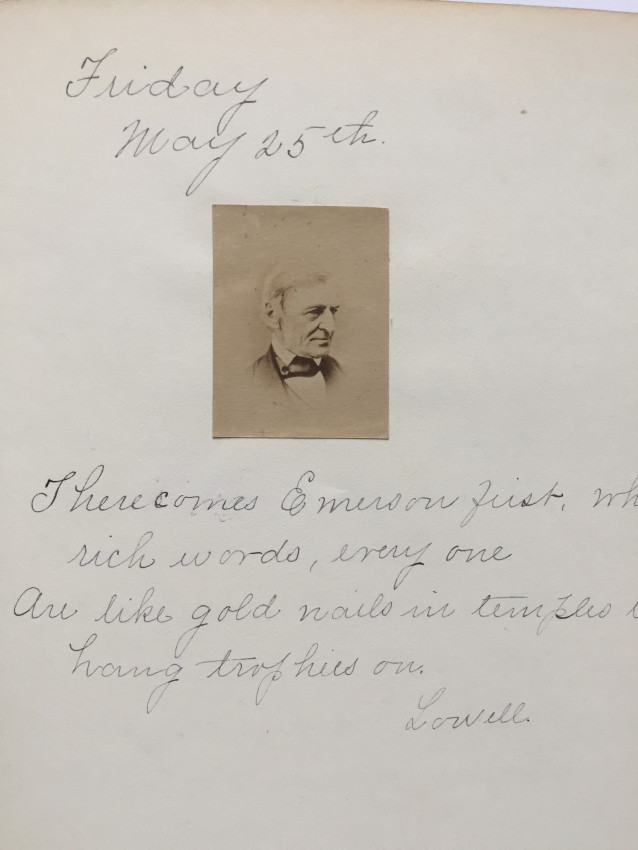 Friday
May 25th.
There comes Emerson first, wh
rich words, every one
Are like gold nails in temples
hang trophies on.
Lowell.